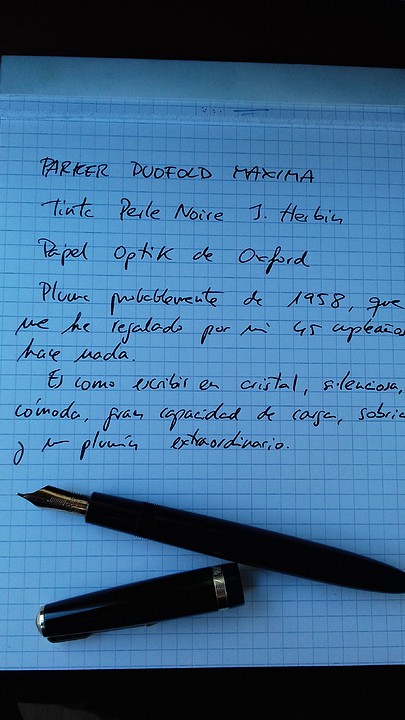 PARKER DUOFOLD MAXIMA
Tinta Perle Noire J. Herbin
Papel Optik de Oxford
Pluma probablemente de 1958, que
me he regalado por mi 45 cumpleaños
hace nada.
Es como escribir en cristal, silenciosa,
cómoda, gran capacidad de carga, sobria
y un plumín extraordinario.